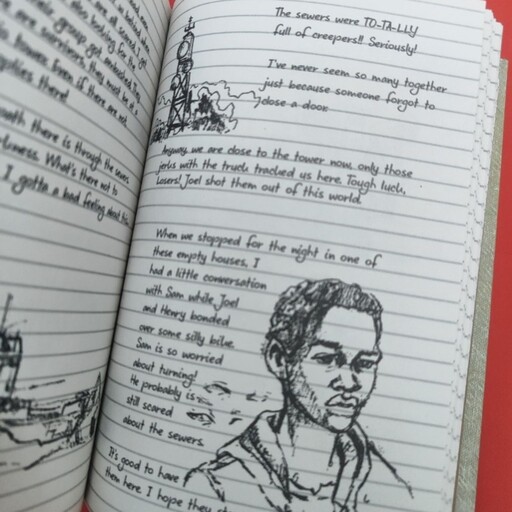 group got ambushed. The
are survivors, they must be
home. Even if there are not
there!
path there is through the sewers
What's there not to
I gotta a bad feeling about this
The sewers were TO-TA-LLY
full of creepers!! Seriously!
I've never seem so many together
just because someone forgot to
close a door.
Anyway we are close to the tower now, only those
jerks with the truck tracked us here. Tough luck,
Losers! Joel shot them out of this world.
When we stopped for the night in one of
these empty houses, I
had a little conversation
with Sam while Joel
and Henry bonded
over some silly bike.
Sam is so worried
about turning!
He probably is
still scared
about the sewers.
It's good to have
them here. I hope they